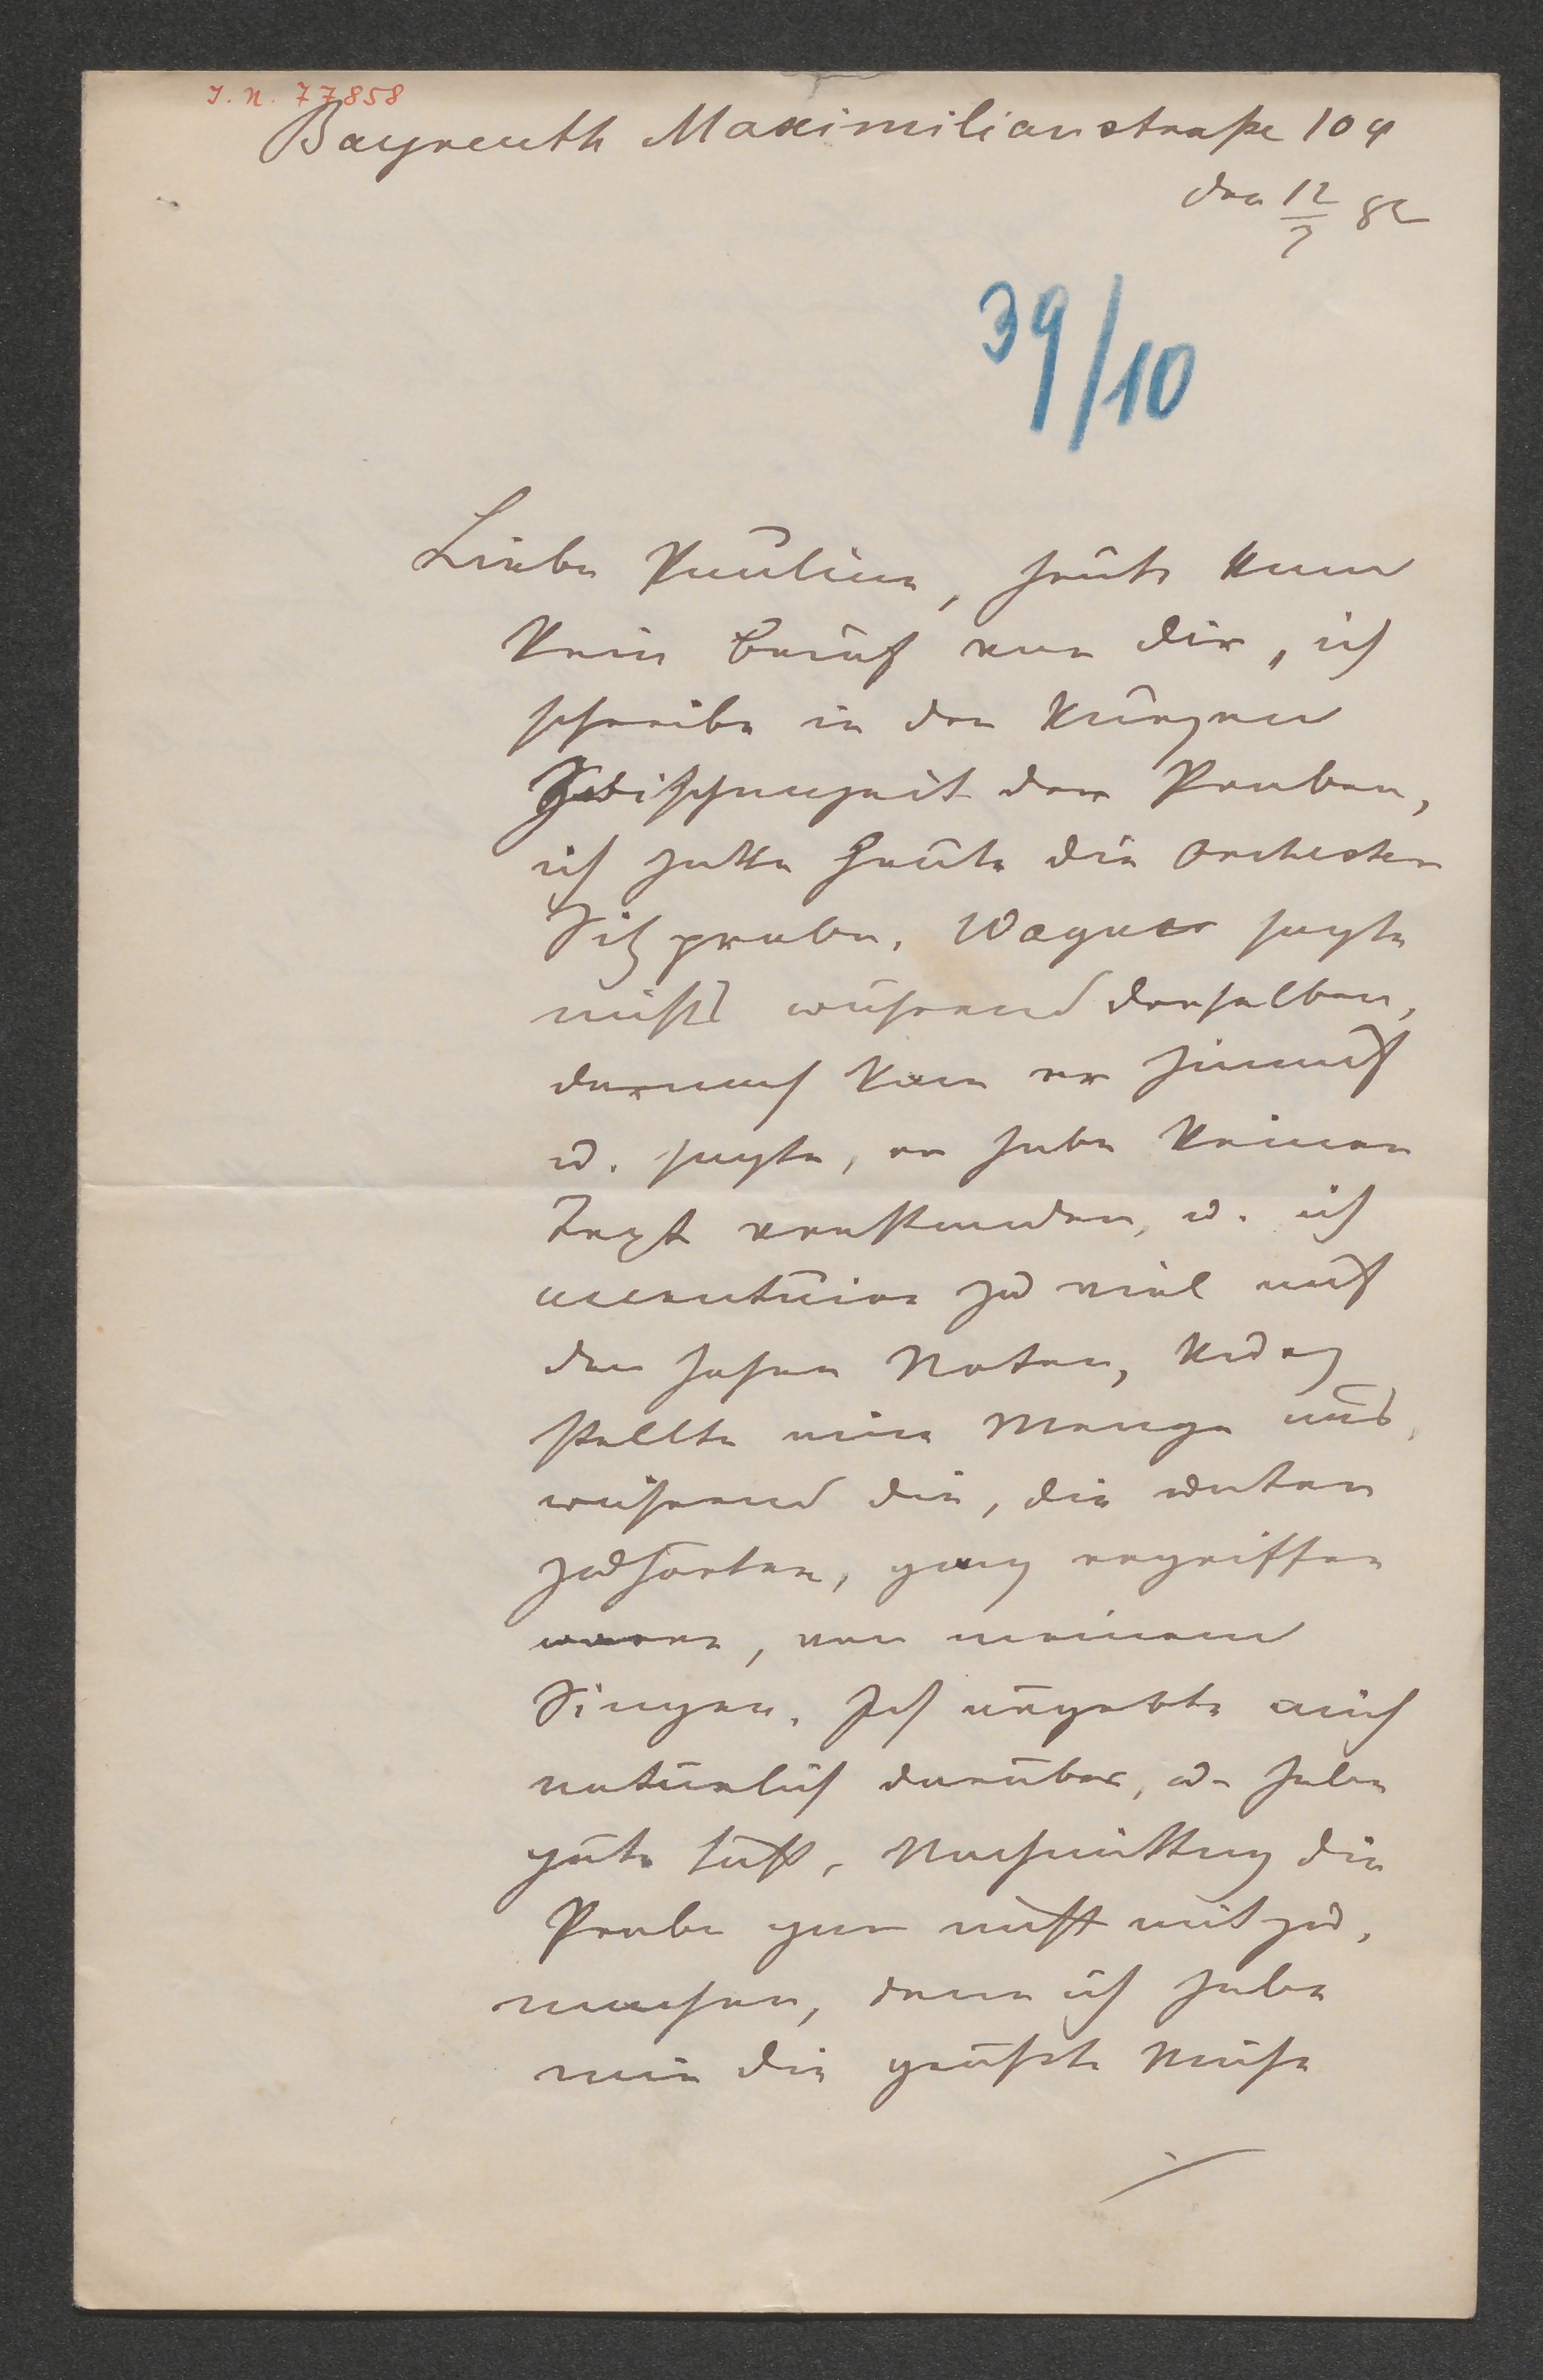 I. N. 77858
Bayreuth Maximilianstraße 104
den 12/7 82
39/10
Liebe Pauline, heute kam
kein Brief von dir, ich
schreibe in der kurzen
Zwischenzeit der Proben,
ich hatte heute die Orchester
Sitzprobe, Wagner sagte
nichts während derselben,
darnach kam er hinauf
u. sagte, er habe keinen
Text verstanden, u. ich
accentuire zu viel auf
den hohen Noten, kurz
stellte eine Menge aus,
während die, die unten
zuhörten, ganz ergriffen
waren, von meinem
Singen. Ich ärgerte mich
natürlich darüber, u. habe
gute Lust, Nachmittag die
Probe gar nicht mitzu-
machen, denn ich habe
mir die größte Mühe